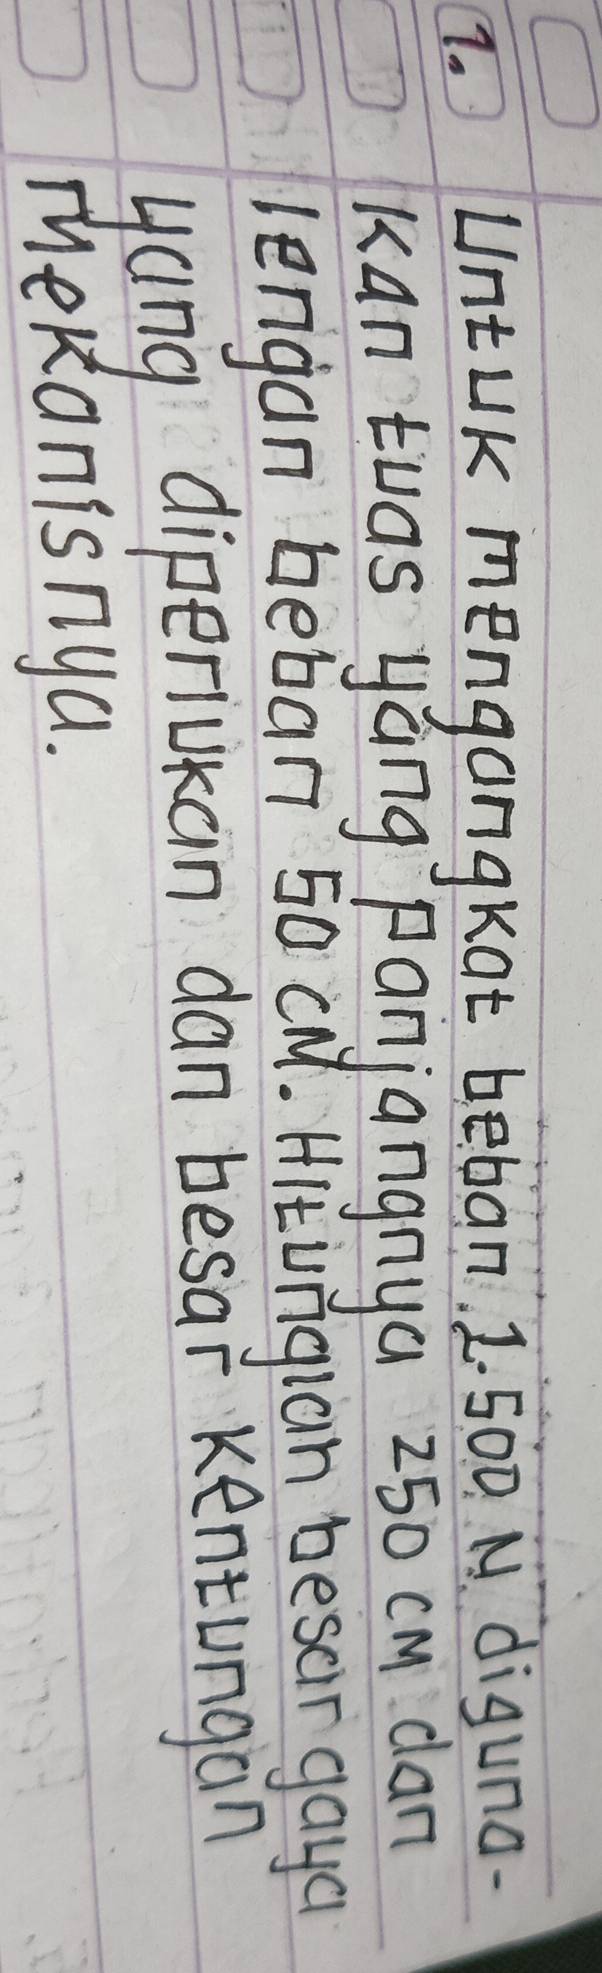 1. Untuk mengangkat beban 1.500 N diguna-
kan tuas yang panjangnya 250 cm dan
lengan beban 50 cm. Hitunglah besar gaya
yang diperlukan dan besar kentungan
mekanisnya.